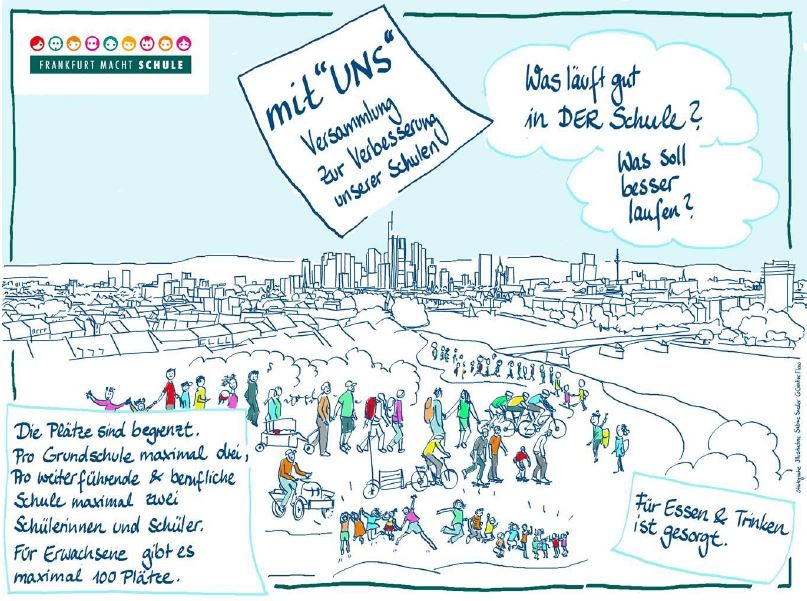 FRANKFURT MACHT SCHULE
mit "UNS"
Versammlung
zur Verbesserung
unserer Schulen
Was läuft gut
in DER Schule?
Was soll
besser
laufen?
Die Plätze sind begrenzt.
Pro Grundschule maximal drei,
Pro weiterführende & berufliche
Schule maximal zwei
Schülerinnen und Schüler.
Für Erwachsene gibt es
maximal 100 Plätze.
Für Essen & Trinken
ist gesorgt.